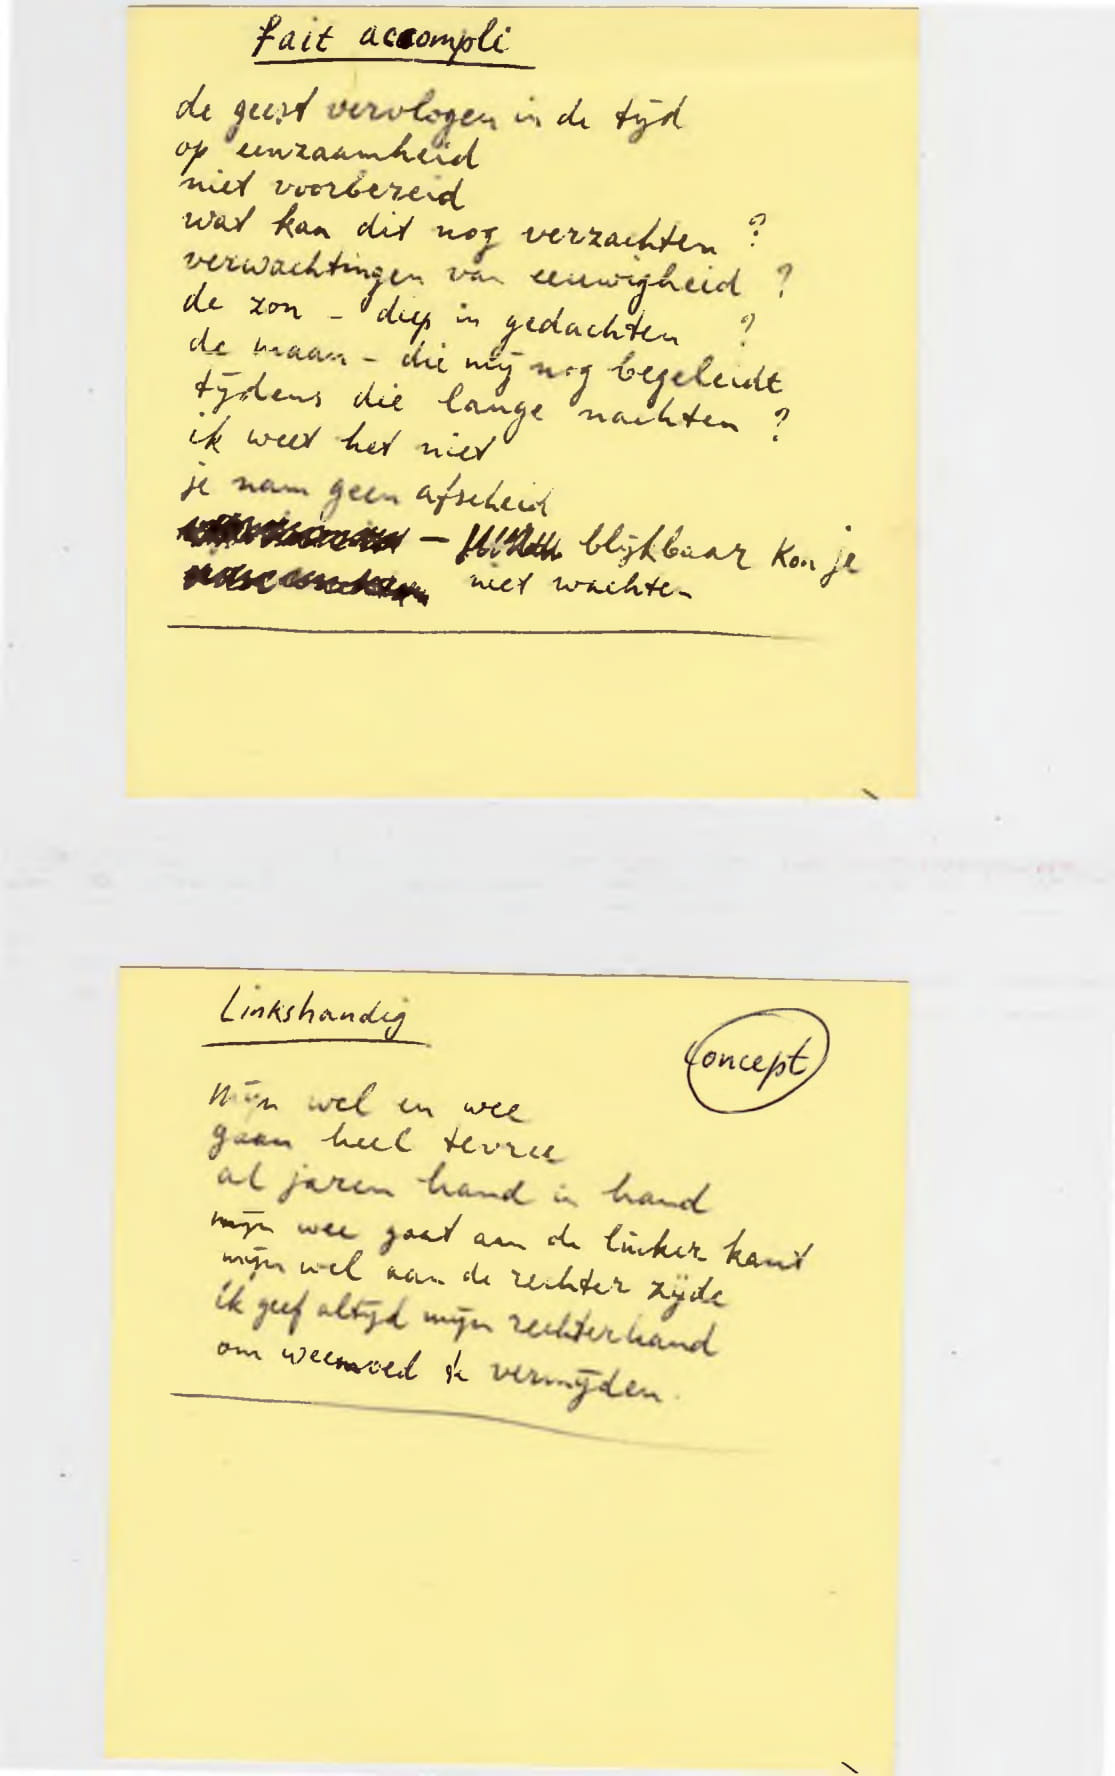 fait accompli
de geest vervlogen in de tijd
op eenzaamheid
niet voorbereid
wat kan dit nog verzachten ?
verwachtingen van eeuwigheid ?
de zon - diep in gedachten ?
de maan - die mij nog begeleidt
tijdens die lange nachten ?
ik weet het niet
je nam geen afscheid
- blijkbaar kon je
niet wachten
Linkshandig
concept
Mijn wel en wee
gaan heel tevree
al jaren hand in hand
mijn wee gaat aan de linker kant
mijn wel aan de rechter zijde
ik geef altijd mijn rechterhand
om weemoed te vermijden.